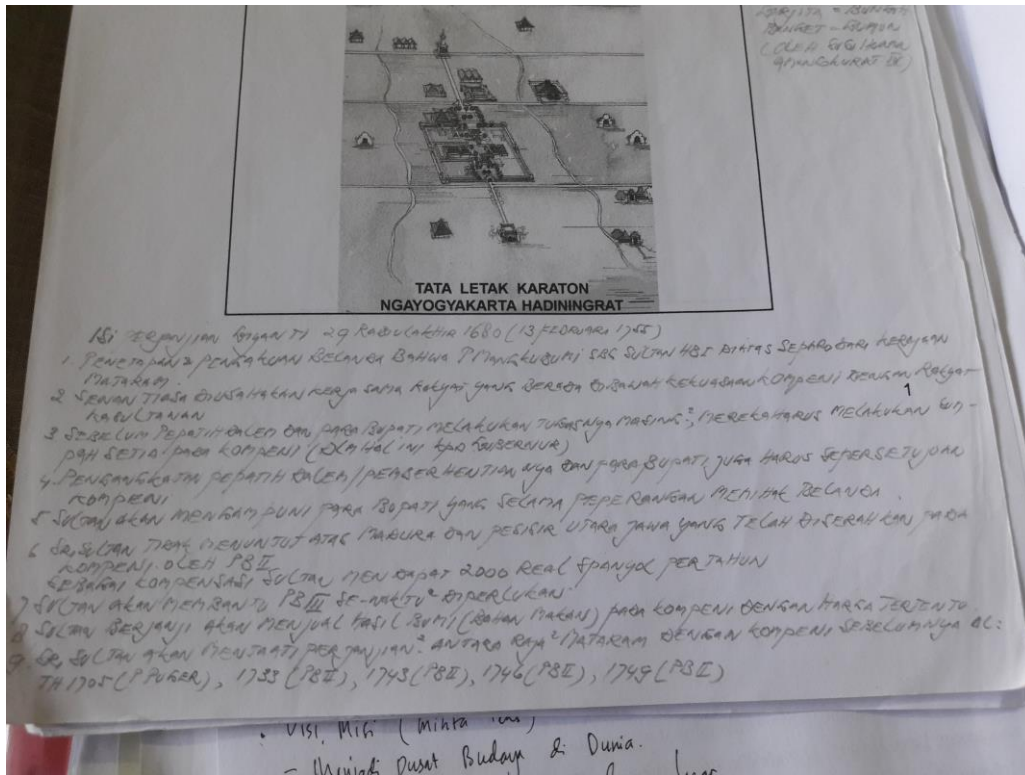 = BUNGAH
BANGET = BUNGUN
(OLEH
AMANGKURAT IV)
TATA LETAK KARATON
NGAYOGYAKARTA HADININGRAT
ISI PERJANJIAN GIYANTI 29 RABIULAKHIR 1680 (13 FEBRUARI 1755)
1. PENETAPAN & PENGAKUAN BELANDA BAHWA P MANGKUBUMI SBG SULTAN HB I DIATAS SEPARO DARI KERAJAAN
MATARAM.
2 SENANTIASA DIUSAHAKAN KERJA SAMA RAKYAT YANG BERADA DIBAWAH KEKUASAAN KOMPENI DENGAN RAKYAT
1
KASULTANAN
3 SEBELUM PEPATIH DALEM DAN PARA BUPATI MELAKUKAN TUGASNYA MASING², MEREKA HARUS MELAKUKAN SUM-
PAH SETIA PADA KOMPENI (DLM HAL INI KPD GUBERNUR)
4. PENGANGKATAN PEPATIH DALEM / PEMBERHENTIANNYA DAN PARA BUPATI, JUGA HARUS SEPERSETUJUAN
KOMPENI
5 SULTAN AKAN MENGAMPUNI PARA BUPATI YANG SELAMA PEPERANGAN MEMIHAK BELANDA.
6 SRI SULTAN TIDAK MENUNTUT ATAS MADURA DAN PESISIR UTARA JAWA YANG TELAH DISERAHKAN PADA
KOMPENI OLEH PB II
SEBAGAI KOMPENSASI SULTAN MENDAPAT 2000 REAL SPANYOL PER TAHUN
7 SULTAN AKAN MEMBANTU PB III SE-WAKTU² DIPERLUKAN
8 SULTAN BERJANJI AKAN MENJUAL HASIL BUMI (BAHAN MAKAN) PADA KOMPENI DENGAN HARGA TERTENTU
9. SRI SULTAN AKAN MENTAATI PERJANJIAN² ANTARA RAJA² MATARAM DENGAN KOMPENI SEBELUMNYA AL:
TH 1705 (P PUGER), 1733 (PB II), 1743 (PB II), 1746 (PB II), 1749 (PB II)
• Visi, Misi (minta
- Menjadi Pusat Budaya di Dunia.